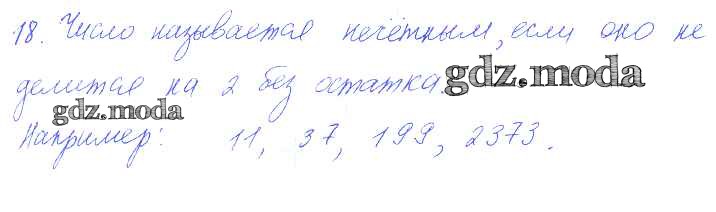 18. Число называется нечётным, если оно не
делится на 2 без остатка.
gdz.moda
gdz.moda
Например: 11, 37, 199, 2373.